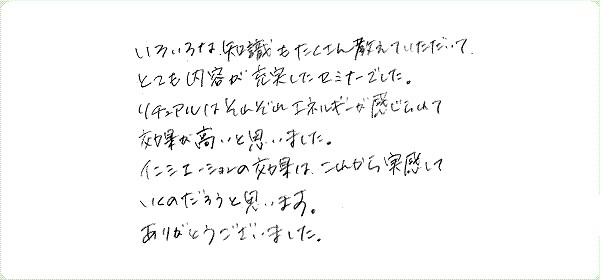 いろいろな知識もたくさん教えていただいて、
とても内容が充実したセミナーでした。
リチュアルはそれぞれエネルギーが感じられて
効果が高いと思いました。
イニシエーションの効果は、これから実感して
いくのだろうと思います。
ありがとうございました。